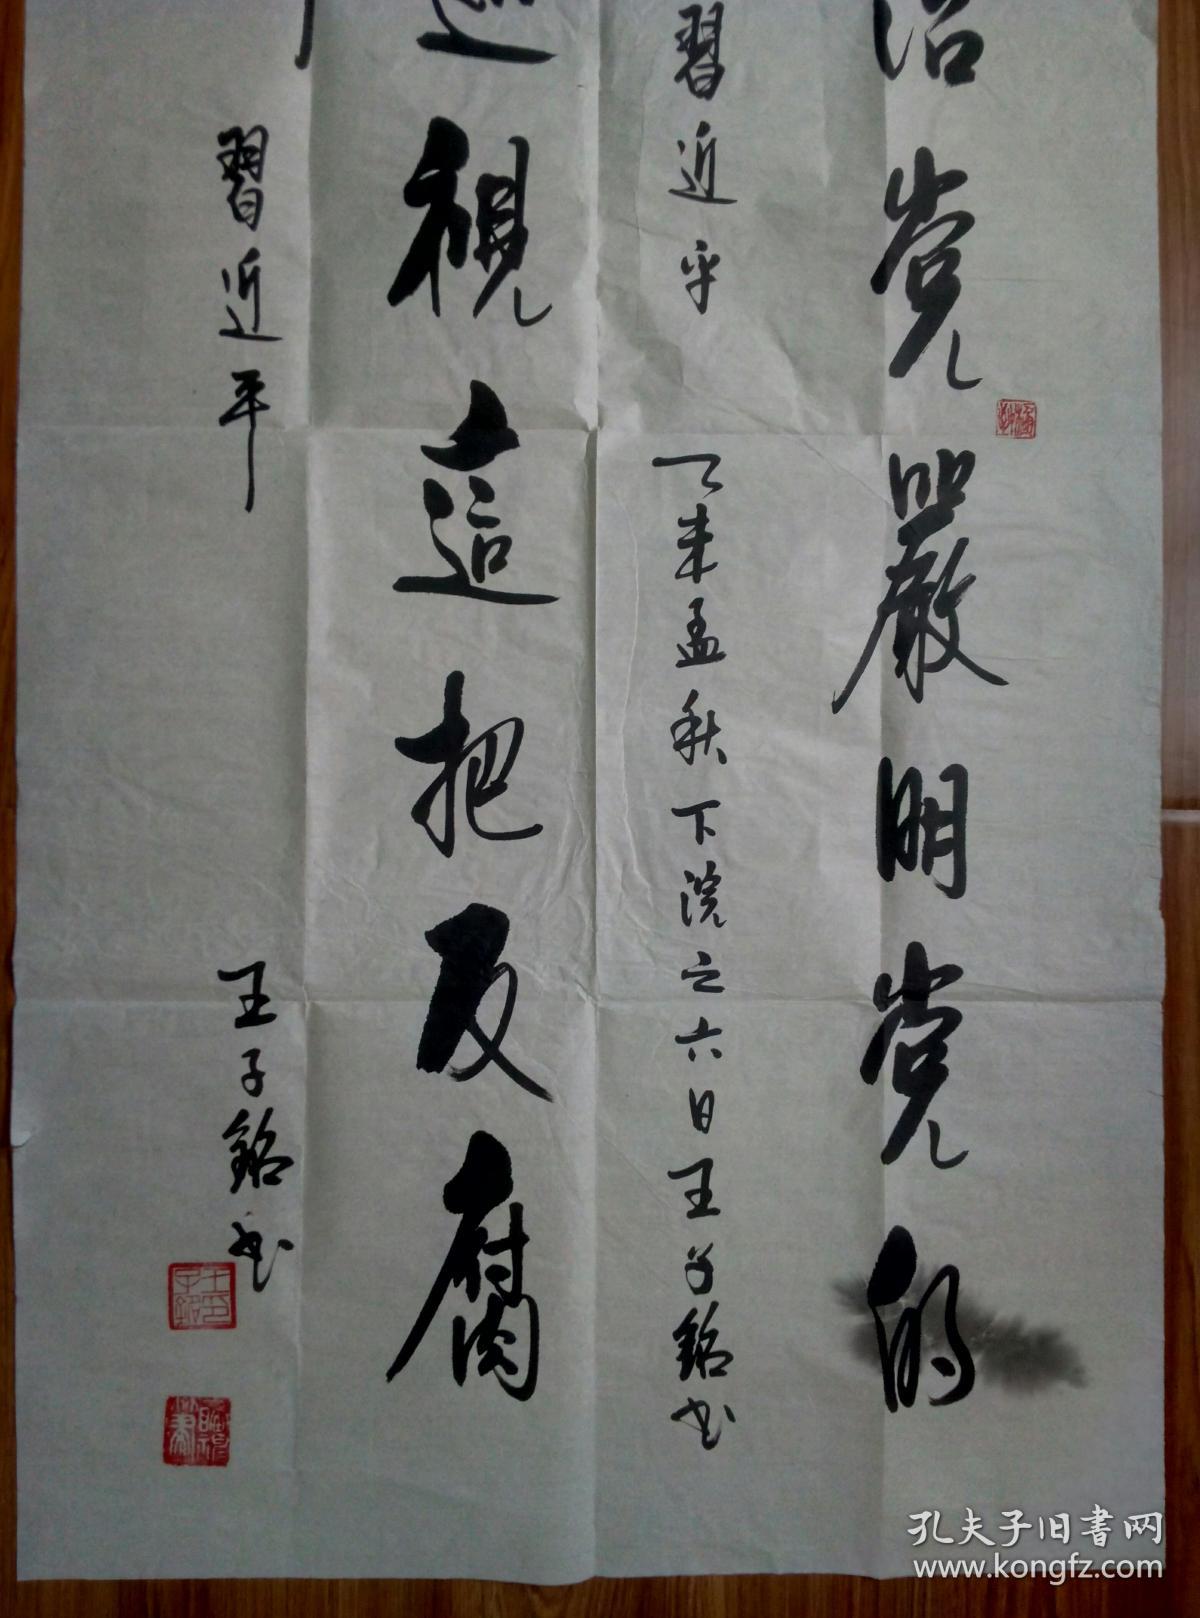 治党嚴明党的
習近平
乙未孟秋下浣之六日王子銘书
巡視這把反腐
習近平
王子銘书
孔夫子旧書网
www.kongfz.com